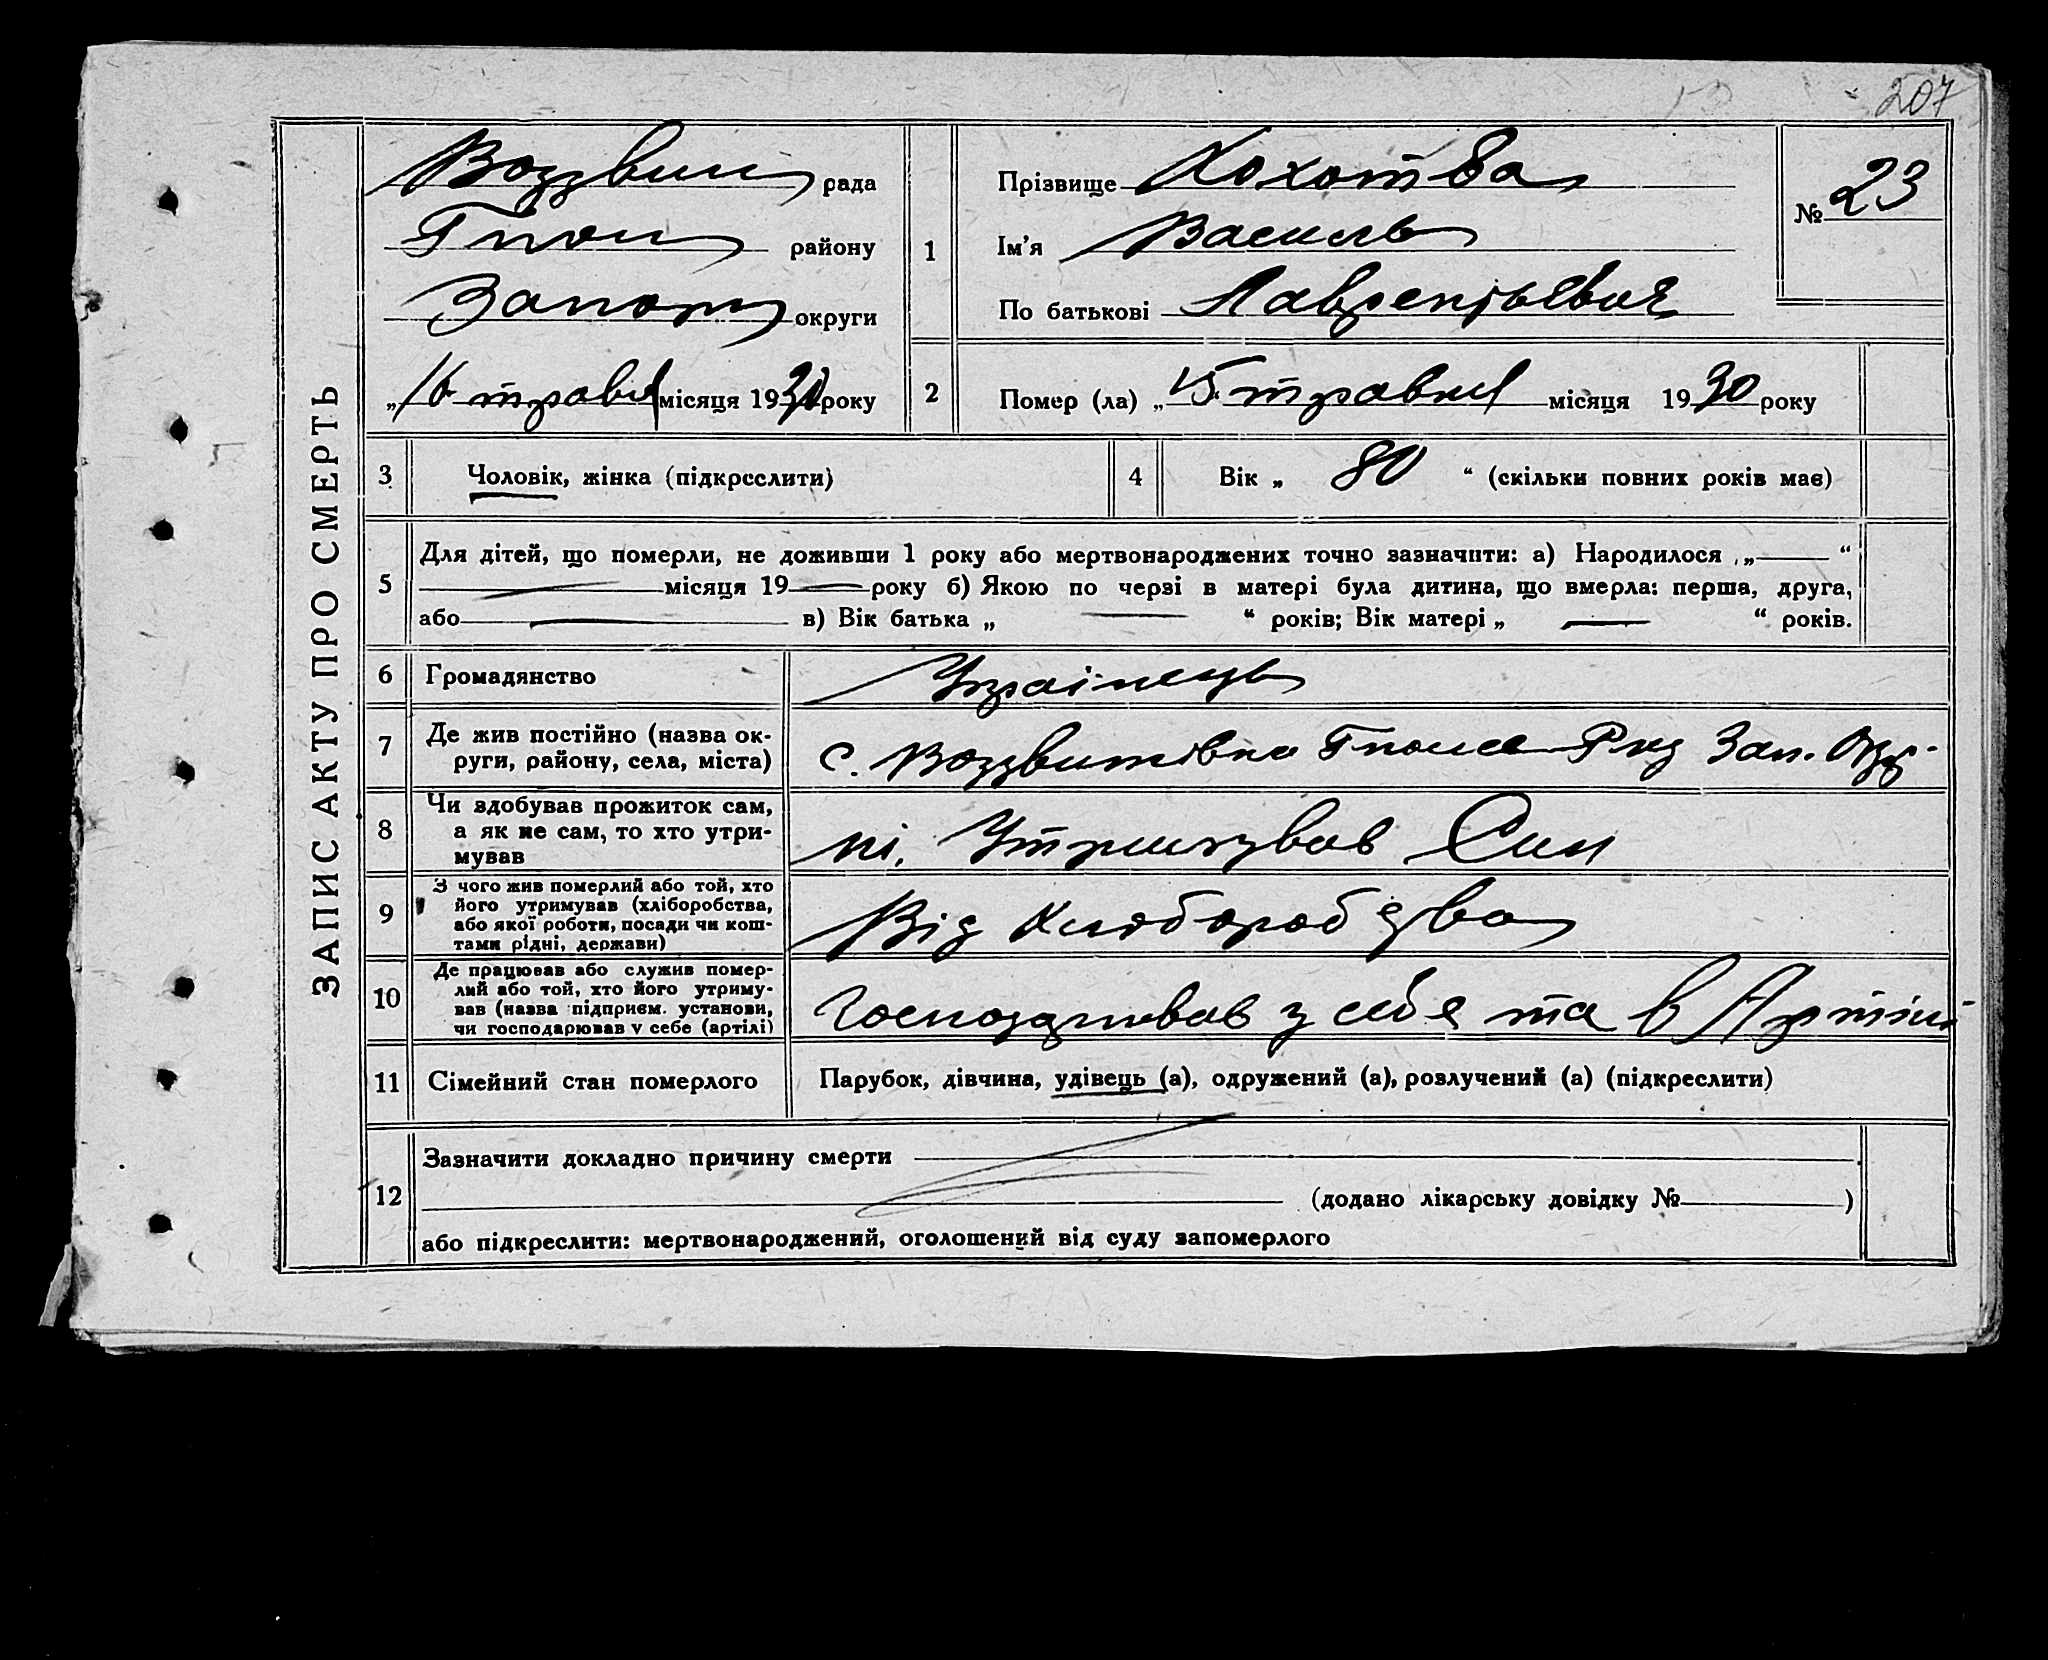 207
ЗАПИС АКТУ ПРО СМЕРТЬ
Воздвиж рада
району
Запорж округи
„16 травня місяця 1930 року
1
Прізвище Хохотва
Ім'я Василь
По батькові Лаврентьевич
№ 23
2 Помер (ла) „15“ травня місяця 1930 року
3 Чоловік, жінка (підкреслити)
4 Вік „ 80 “ (скільки повних років має)
5 Для дітей, що померли, не доживши 1 року або мертвонароджених точно зазначити: а) Народилося „ — “
— місяця 19 — року б) Якою по черзі в матері була дитина, що вмерла: перша, друга,
або — в) Вік батька „ — “ років; Вік матері „ — “ років.
6 Громадянство Українець
7 Де жив постійно (назва ок-
руги, району, села, міста) с. Воздвижівка Зап. Окр.
8 Чи здобував прожиток сам,
а як не сам, то хто утри-
мував ні, Утримував Син
9 З чого жив померлий або той, хто
його утримував (хліборобства,
або якої роботи, посади чи кош-
тами рідні, держави) Від Хліборобства
10 Де працював або служив помер-
лий або той, хто його утриму-
вав (назва підприєм. установи,
чи господарював у себе (артілі) Господарював у себе та в Артілі
11 Сімейний стан померлого Парубок, дівчина, удівець (а), одружений (а), розлучений (а) (підкреслити)
12 Зазначити докладно причину смерти
(додано лікарську довідку № )
або підкреслити: мертвонароджений, оголошений від суду запомерлого